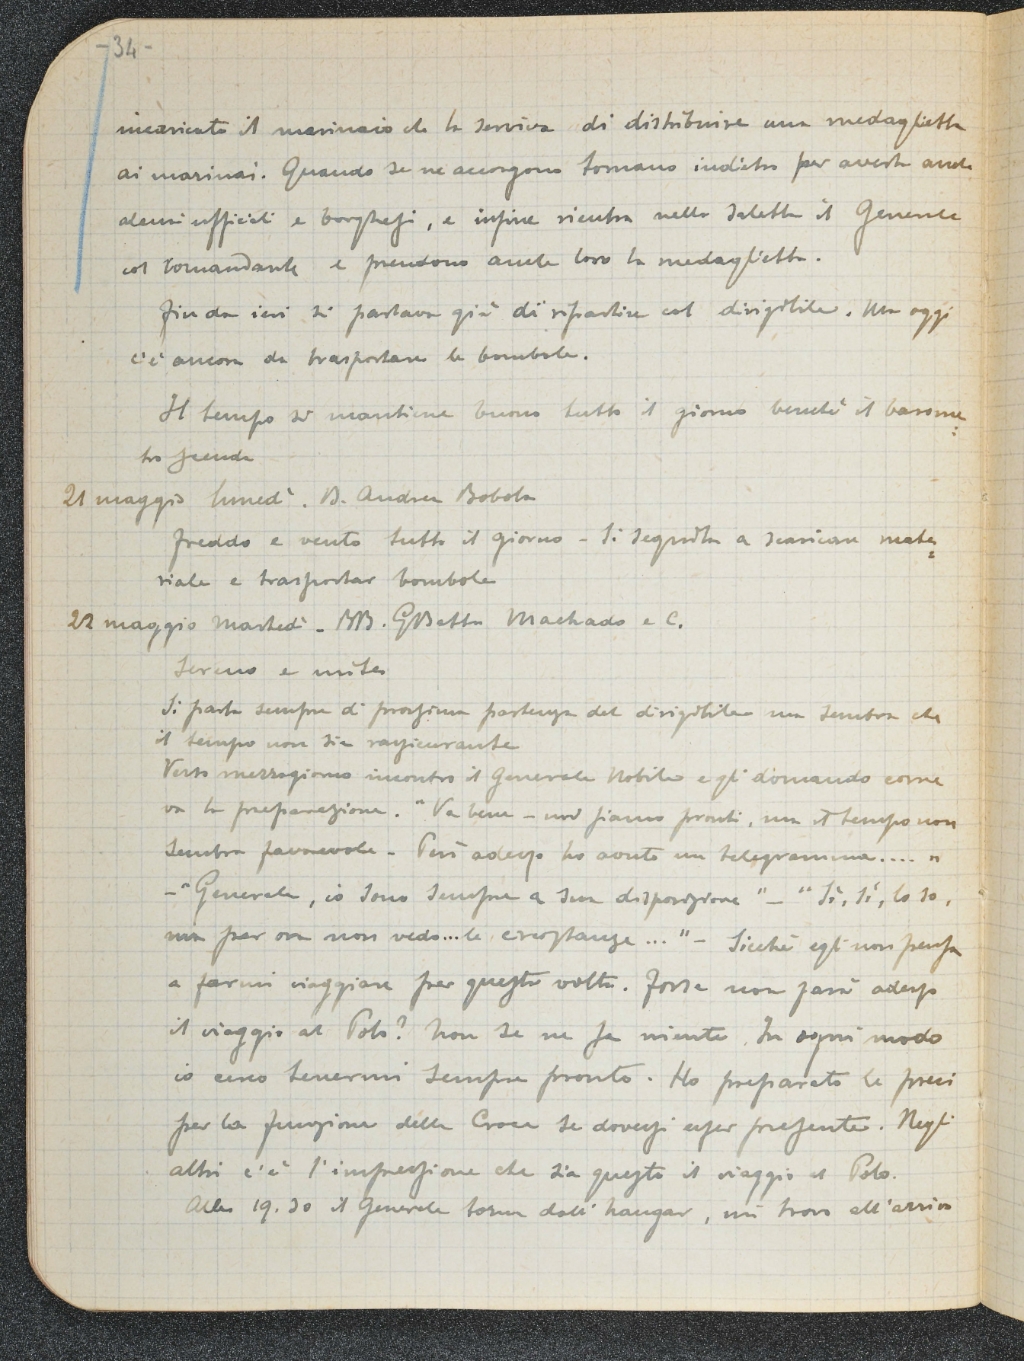 -34-
incaricato il marinaio che la serviva di distribuire una medaglietta
ai marinai. Quando se ne accorgono tornano indietro per averla anche
alcuni ufficiali e borghesi, e infine rientra nella saletta il Generale
col Comandante e prendono anche loro la medaglietta.
Fin da ieri si parlava già di ripartire col dirigibile. Ma oggi
c'è ancora da trasportare le bombole.
Il tempo si mantiene buono tutto il giorno benchè il barome=
tro scenda
21 maggio lunedì. B. Andrea Bobola
Freddo e vento tutto il giorno - Si seguita a scaricare mate=
riale e trasportar bombole
22 maggio Martedì - BB. GBatta Machado e C.
Sereno e mite
Si parla sempre di prossima partenza del dirigibile ma sembra che
il tempo non sia rassicurante
Verso mezzogiorno incontro il Generale Nobile e gli domando come
va la preparazione. "Va bene - noi siamo pronti, ma il tempo non
sembra favorevole - Però adesso ho avuto un telegramma.... "
-"Generale, io sono sempre a sua disposizione" - "Sì, sì, lo so,
ma per ora non vedo...le circostanze ..." - Sicchè egli non pensa
a farmi viaggiare per questa volta. Forse non sarà adesso
il viaggio al Polo? Non se ne sa niente. In ogni modo
io cerco tenermi sempre pronto. Ho preparato le preci
per la funzione della Croce se dovessi esser presente. Negli
altri c'è l'impressione che sia questo il viaggio al Polo.
Alle 19.30 il Generale torna dall'hangar, mi trovo all'arrivo